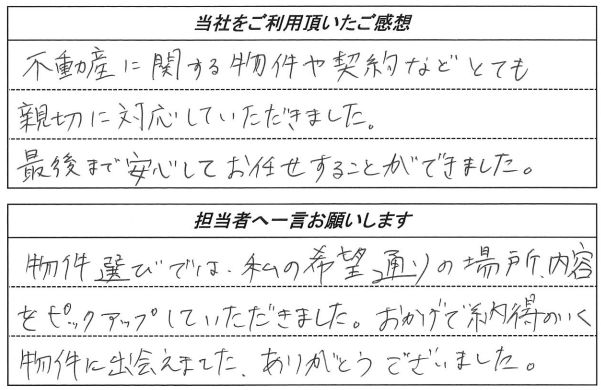 当社をご利用頂いたご感想
不動産に関する物件や契約などとても
親切に対応していただきました。
最後まで安心してお任せすることができました。
担当者へ一言お願いします
物件選びでは、私の希望通りの場所、内容
をピックアップしていただきました。おかげで納得のいく
物件に出会えました、ありがとうございました。